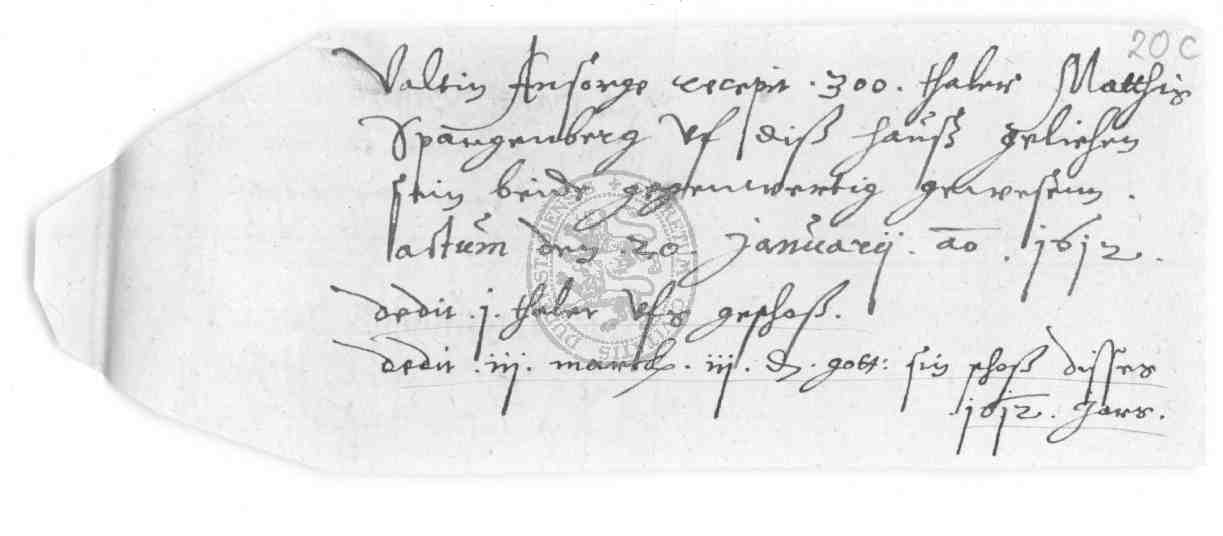 20 C
Valtin Ansorge recepit .300. thaler Matthis
Spangenberg Uf diß hauß geliehen
sein beide gegenwertig gewesenn .
actum den .20. Januarij . ao . 1612 .
dedit .j. thaler Ufs geschoß .
dedit .iij. marck . iij . d . gott: sin schoß disses
.1612 . Jars .